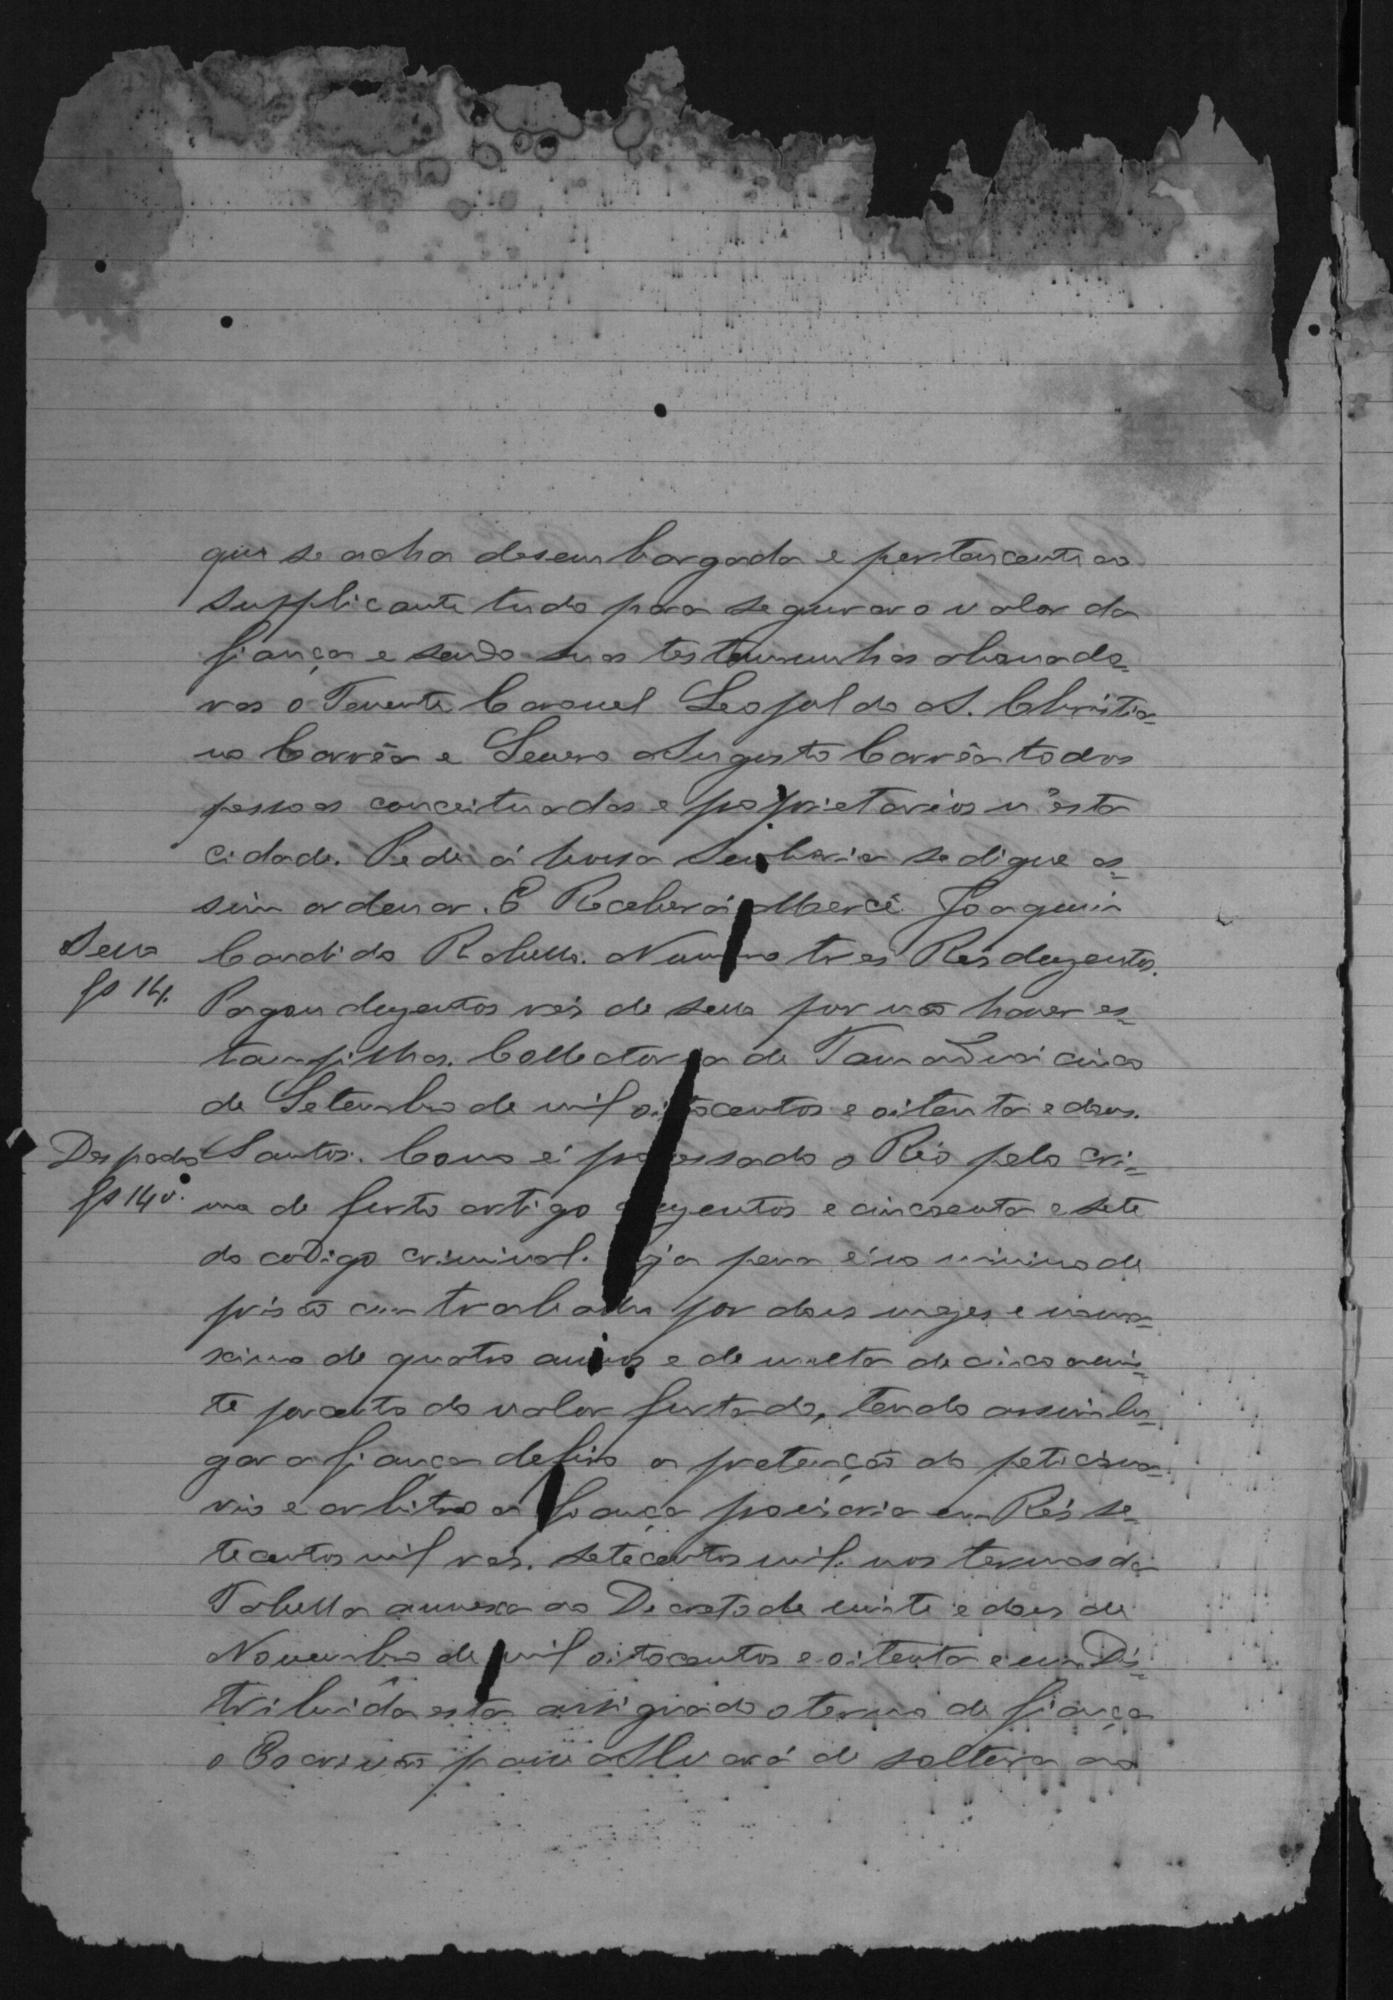 que se acha desembargada e pertencente ao
supplicante tudo para segurar o valor da
fiança e sendo suas testemunhas abonado-
ras o Tenente Coronel Leopoldo A. Christia-
no Corrêa e Severo Augusto Corrêa todos
pessoas conceituadas e proprietarios n'esta
cidade. Pede á vossa Senhoria se digne as-
sim ordenar. E Receberá Mercê. Joaquim
Candido Rabello. Numero tres Reis duzentos.
Sello
fs 14.
Pagou duzentos reis de sello por não haver es-
tampilhas. Collectoria de Tamanduá cinco
de Setembro de mil oitocentos e oitenta e dous.
Despacho
fs 14 v.
Santos. Como é processado o Réo pelo cri-
me de furto artigo duzentos e cincoenta e sete
do codigo criminal. cuja pena é no minimo de
prisão com trabalho por dous mezes e no ma-
ximo de quatro annos e de multa de cinco a vin-
te por cento do valor furtado, tendo assim lu-
gar a fiança defiro a pretenção do peticiona-
rio e arbitro a fiança provisoria em Réis se-
tecentos mil reis. setecentos mil. nos termos da
Tabella annexa ao Decreto de vinte e dous de
Novembro de mil oitocentos e oitenta e um Dis-
tribuida esta assignado o termo de fiança
o Escrivão passe Alvará de soltura ao